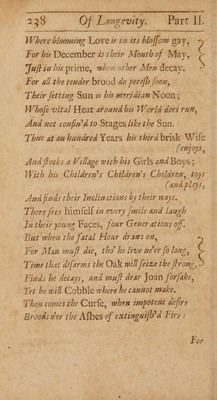 238 Of Longevity. Part II.
Where blooming Love is in its blossom gay,
For his December is their Month of May,
Just in his prime, when other Men decay.
For all the tender brood do perish soon,
Their setting Sun is his meridian Noon;
Whose vital Heat around his World does run,
And not confin'd to Stages like the Sun.
Thus at an hundred Years his third brisk Wife
(enjoys,
And stocks a Village with his Girls and Boys;
With his Children's Children's Children, toys
(and plays,
And finds their Inclinations by their ways.
There sees himself in every smile and laugh
In their young Faces, four Generations off.
But when the fatal Hour draws on,
For Man must die, tho' he live ne'er so long,
Time that disarms the Oak will seize the strong,
Finds he decays, and must dear Joan forsake,
Yet he will Cobble where he cannot make.
Then comes the Curse, when impotent desire
Broods o'er the Ashes of extinguish'd Fire:
For